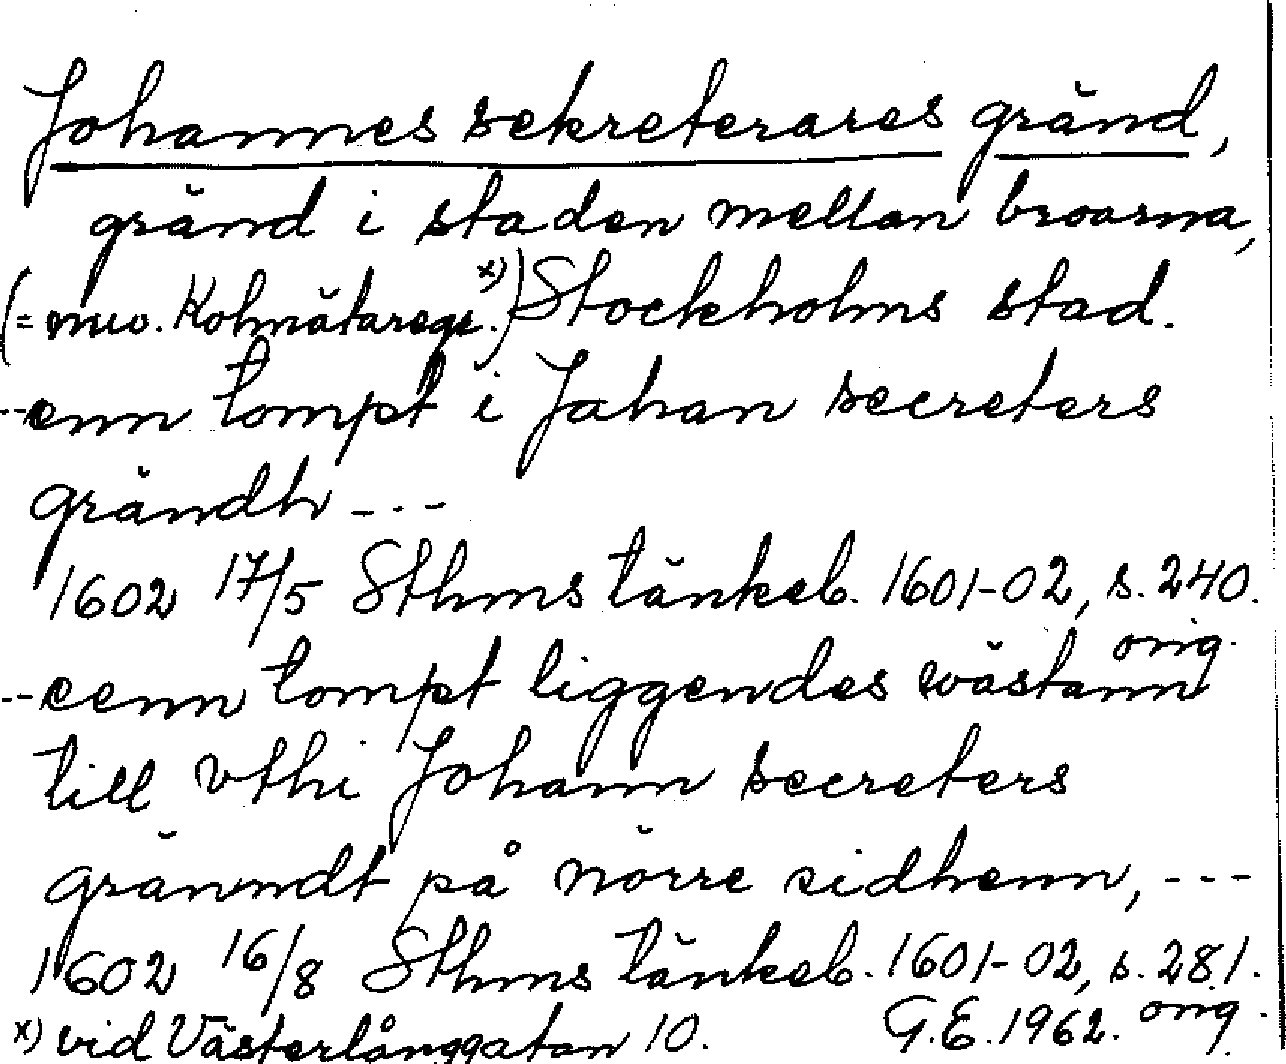 Johannes sekreterares gränd,
gränd i staden mellan broarna,
(= nuv. Kolmätaregr. x)) Stockholms stad.
--enn tompt i Johan secreters
grändh ---
1602 17/5 Sthms tänkeb. 1601-02, s. 240.
orig.
--eenn tompt liggendes wästann
till vthi Johann secreters
gränndt på nörre sidhenn, ---
1602 16/8 Sthms tänkeb. 1601-02, s. 281.
orig.
x) vid Västerlånggatan 10. G.E. 1962.